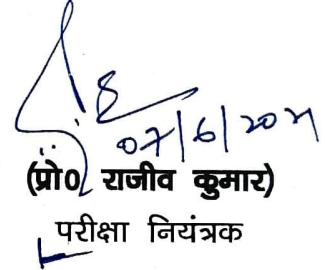 07/6/202
(प्रो0 राजीव कुमार)
परीक्षा नियंत्रक